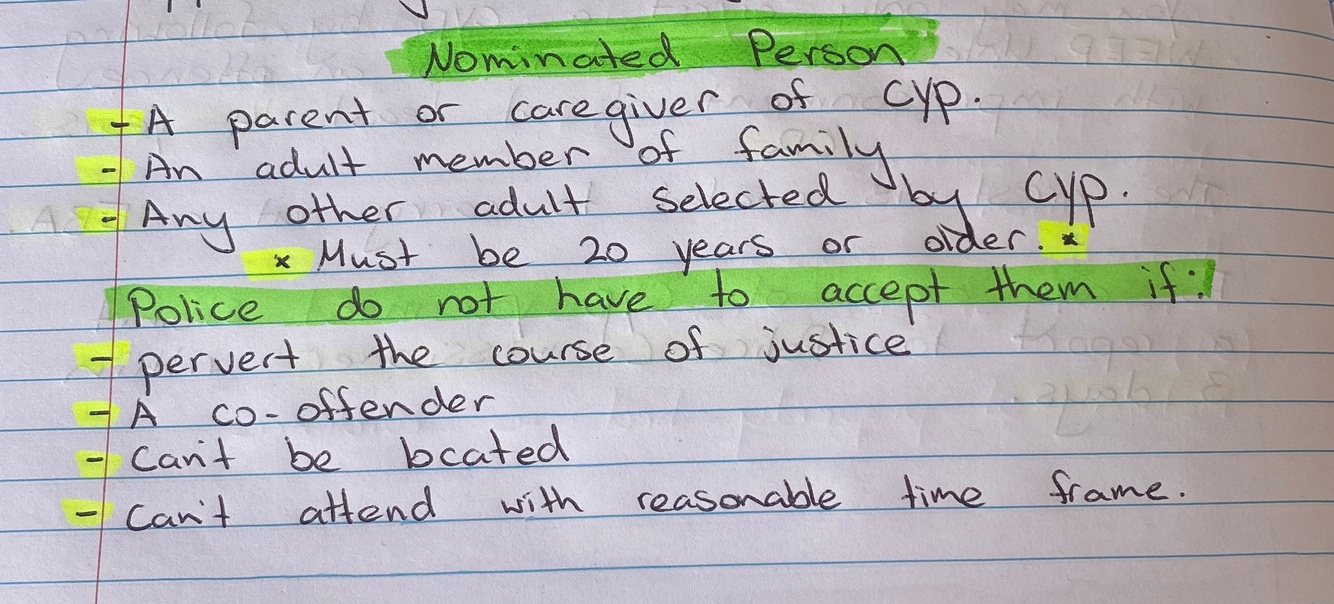 Nominated Person
- A parent or caregiver of CYP.
- An adult member of family
- Any other adult selected by CYP.
* Must be 20 years or older. *
Police do not have to accept them if:
- pervert the course of justice
- A co-offender
- Can't be located
- Can't attend with reasonable time frame.